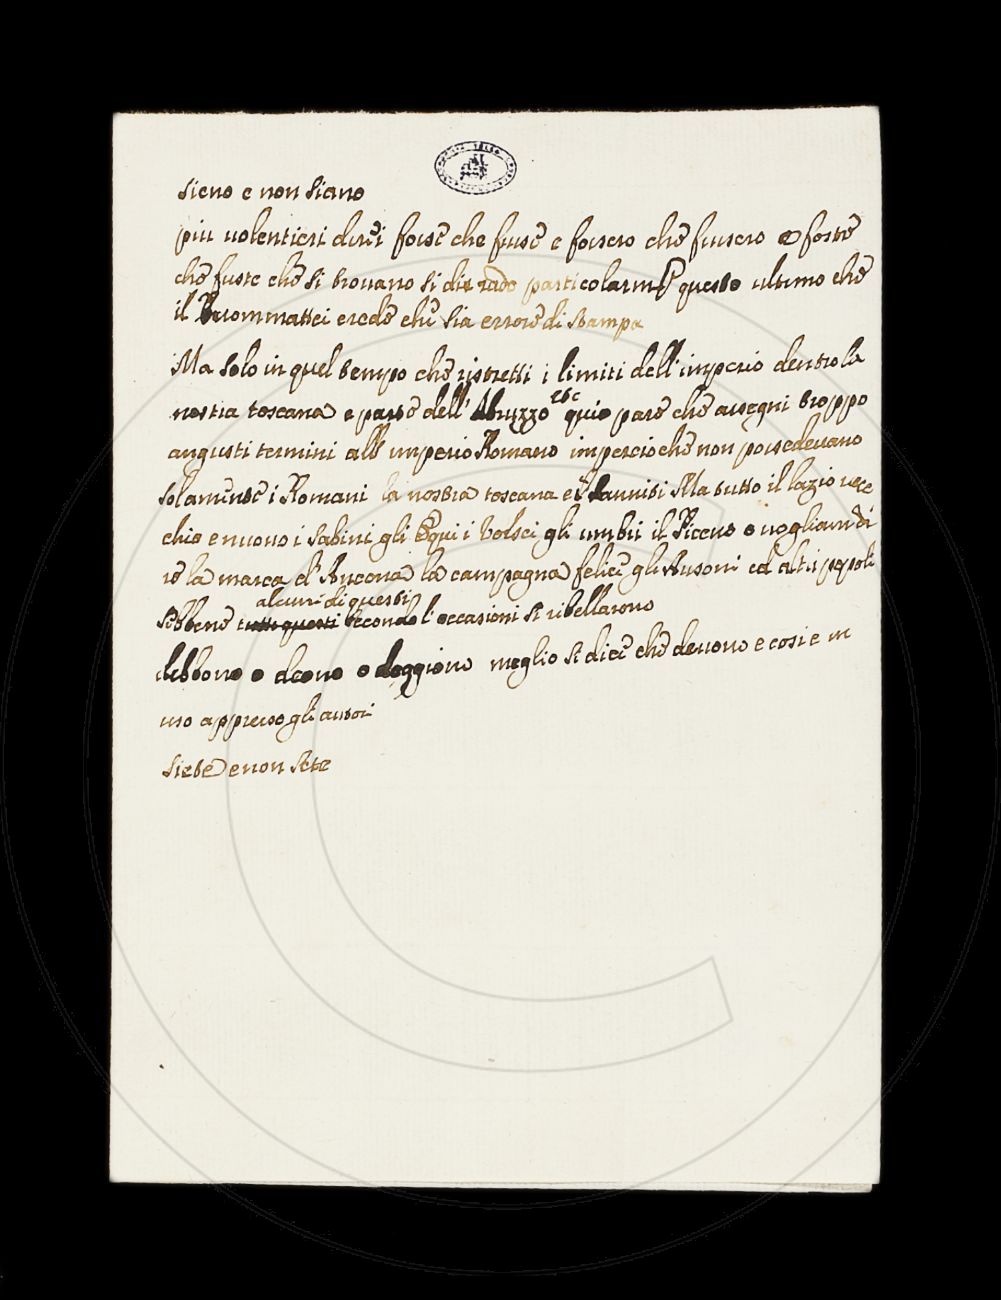 sieno e non siano
piu volentieri direi fosse che fusse e fossero che fussero e foste
che fuste che si trovano si di rado particolarm.e questo ultimo che
il Buommattei crede che sia errore di stampa
Ma solo in quel tempo che ristretti i limiti dell'imperio dentro la
nostra toscana e parte dell'Abruzzo etc qui pare che assegni troppo
angusti termini all imperio Romano impercioche non possedevano
solamente i Romani la nostra toscana e i sanniti Ma tutto il lazio vec
chio e nuovo i sabini gli Equi i Volsci gli umbri il Piceno o vogliam di
re la marca d'Ancona la campagna felice gli Ausoni ed altri popoli
alcuni di questi
sebbene tutti questi secondo l'occasioni si ribellarono
debbono o deono o deggiono meglio si dice che devono e cosi e in
uso appresso gli autori
siete e non sete